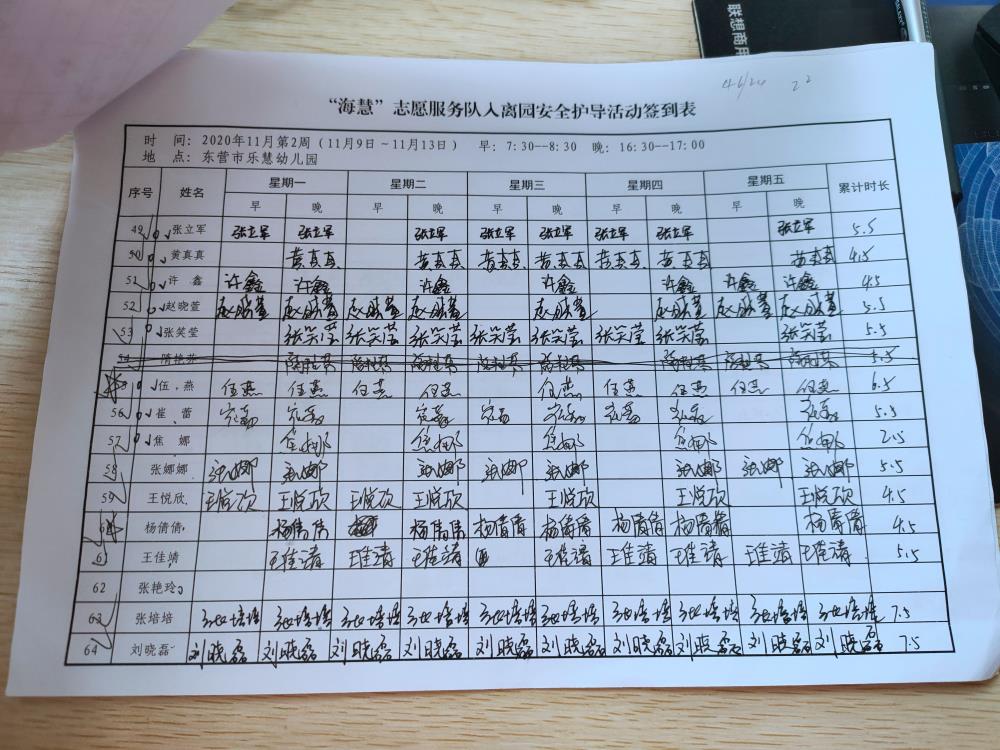 联想商用
"海慧"志愿服务队入离园安全护导活动签到表
时 间: 2020年11月第2周 (11月9日~11月13日) 早: 7:30--8:30 晚: 16:30--17:00
地 点: 东营市乐慧幼儿园
序号 姓名 星期一 星期二 星期三 星期四 星期五 累计时长
早 晚 早 晚 早 晚 早 晚 早 晚
49 张立军 张立军 张立军 张立军 张立军 张立军 张立军 张立军 张立军 5.5
50 黄真真 黄真真 黄真真 黄真真 黄真真 黄真真 黄真真 黄真真 4.5
51 许 鑫 许鑫 许鑫 许鑫 许鑫 许鑫 许鑫 许鑫 4.5
52 赵晓萱 赵晓萱 赵晓萱 赵晓萱 赵晓萱 赵晓萱 赵晓萱 赵晓萱 赵晓萱 5.5
53 张笑莹 张笑莹 张笑莹 张笑莹 张笑莹 张笑莹 张笑莹 张笑莹 张笑莹 5.5
伍 燕 伍燕 伍燕 伍燕 伍燕 伍燕 伍燕 伍燕 伍燕 伍燕 6.5
56 崔 蕾 崔蕾 崔蕾 崔蕾 崔蕾 崔蕾 崔蕾 崔蕾 崔蕾 5.5
57 焦 娜 焦娜 焦娜 焦娜 焦娜 焦娜 2.5
58 张娜娜 张娜娜 张娜娜 张娜娜 张娜娜 张娜娜 张娜娜 张娜娜 张娜娜 5.5
59 王悦欣 王悦欣 王悦欣 王悦欣 王悦欣 王悦欣 王悦欣 王悦欣 4.5
杨倩倩 杨倩倩 杨倩倩 杨倩倩 杨倩倩 杨倩倩 杨倩倩 杨倩倩 4.5
61 王佳靖 王佳靖 王佳靖 王佳靖 王佳靖 王佳靖 王佳靖 王佳靖 王佳靖 5.5
62 张艳玲
63 张培培 张培培 张培培 张培培 张培培 张培培 张培培 张培培 张培培 张培培 张培培 7.5
64 刘晓磊 刘晓磊 刘晓磊 刘晓磊 刘晓磊 刘晓磊 刘晓磊 刘晓磊 刘晓磊 刘晓磊 刘晓磊 7.5